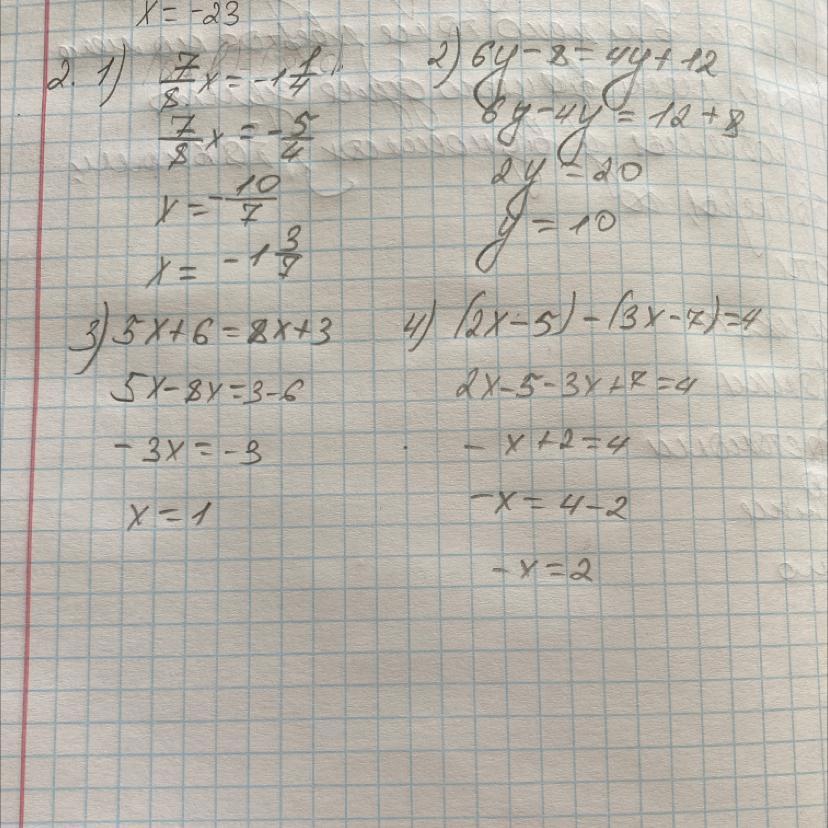 x = -23
2. 1) 7/8 x = -1 1/4
7/8 x = -5/4
x = -10/7
x = -1 3/7
2) 6y - 8 = 4y + 12
6y - 4y = 12 + 8
2y = 20
y = 10
3) 5x + 6 = 8x + 3
5x - 8x = 3 - 6
-3x = -3
x = 1
4) (2x - 5) - (3x - 7) = 4
2x - 5 - 3x + 7 = 4
- x + 2 = 4
-x = 4 - 2
-x = 2